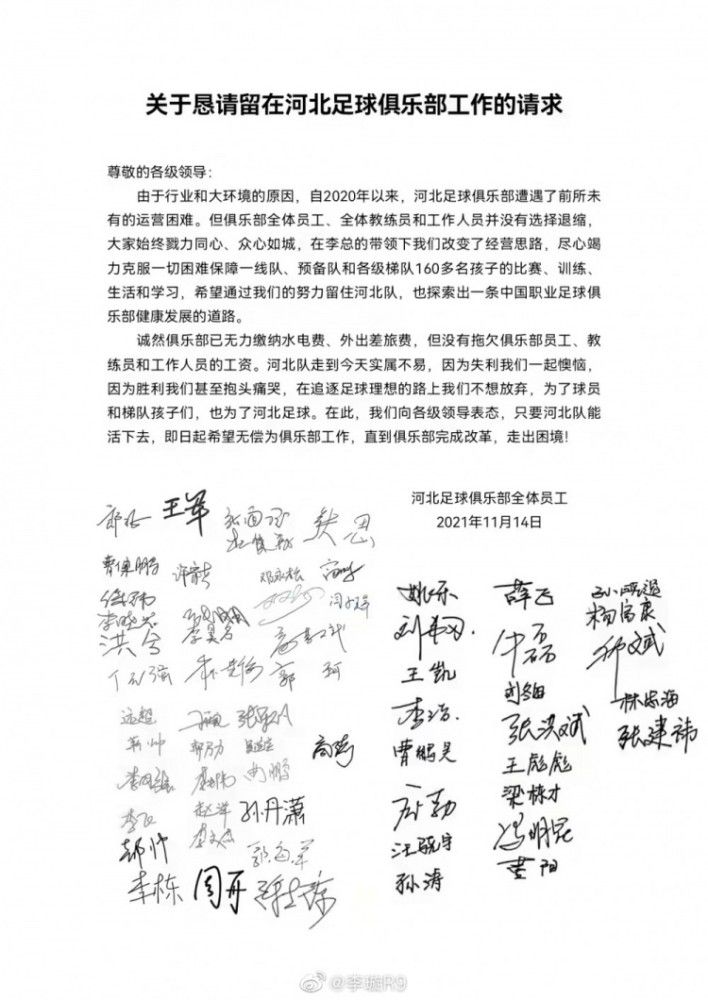 关于恳请留在河北足球俱乐部工作的请求
尊敬的各级领导：
由于行业和大环境的原因，自2020年以来，河北足球俱乐部遭遇了前所未
有的运营困难。但俱乐部全体员工、全体教练员和工作人员并没有选择退缩，
大家始终戮力同心、众心如城，在李总的带领下我们改变了经营思路，尽心竭
力克服一切困难保障一线队、预备队和各级梯队160多名孩子的比赛、训练、
生活和学习，希望通过我们的努力留住河北队，也探索出一条中国职业足球俱
乐部健康发展的道路。
诚然俱乐部已无力缴纳水电费、外出差旅费，但没有拖欠俱乐部员工、教
练员和工作人员的工资。河北队走到今天实属不易，因为失利我们一起懊恼，
因为胜利我们甚至抱头痛哭，在追逐足球理想的路上我们不想放弃，为了球员
和梯队孩子们，也为了河北足球。在此，我们向各级领导表态，只要河北队能
活下去，即日起希望无偿为俱乐部工作，直到俱乐部完成改革，走出困境！
河北足球俱乐部全体员工
2021年11月14日
王军
姚乐 薛飞
杨富康
王凯
李浩 张洪斌 林忠海
曹鹏昊 王彪彪 张建祎
梁栋才
冯明昆
孙涛 黄阳
远超
曹鹏
赵洋 孙丹潇
郝帅
李栋 周开
@李璇R9